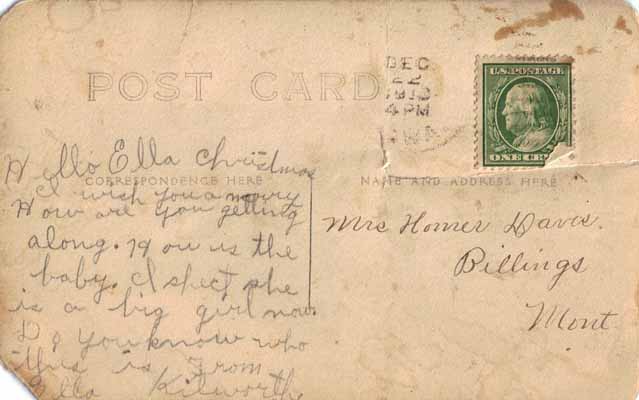 POST CARD
DEC
22
1910
4 PM
U.S. POSTAGE
ONE CE
CORRESPONDENCE HERE
NAME AND ADDRESS HERE
Hello Ella Christmas
I wish you a merry
How are you getting
along. How is the
baby. I spect she
is a big girl now.
Do you know who
this is From
Ella Kilworth
Mrs Homer Davis.
Billings
Mont